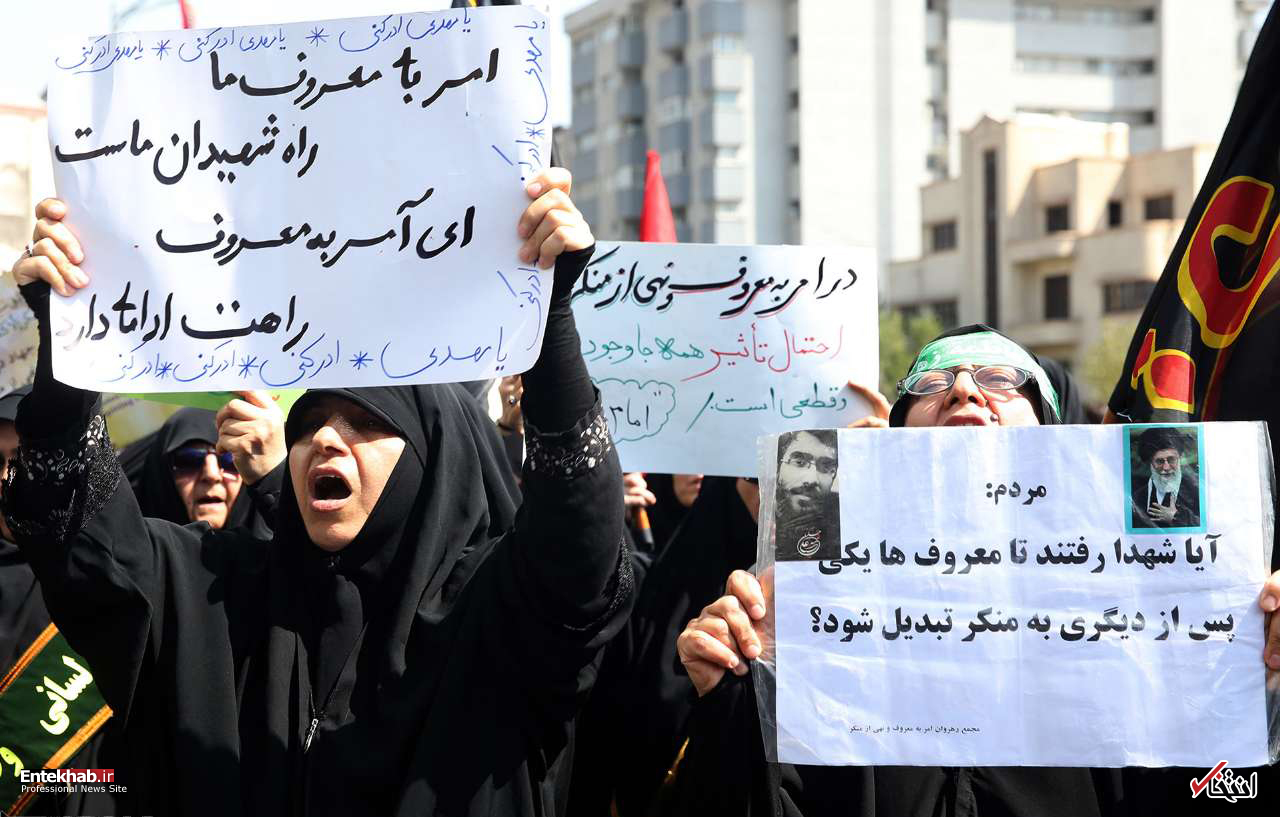 یا مهدی ادرکنی * یا مهدی ادرکنی * یا مهدی ادرکنی
امر با معروف ما
راه شهیدان ماست
ای آمر به معروف
راهت ادامه دارد
یا مهدی * ادرکنی * ادرکنی * ادرکنی
در امر به معروف و نهی از منکر
احتمال تأثیر همه جا وجود
و قطعی است.
مردم:
آیا شهدا رفتند تا معروف ها یکی
پس از دیگری به منکر تبدیل شود؟
مجمع رهروان امر به معروف و نهی از منکر
لسانی
Entekhab.ir
Professional News Site
انتخاب